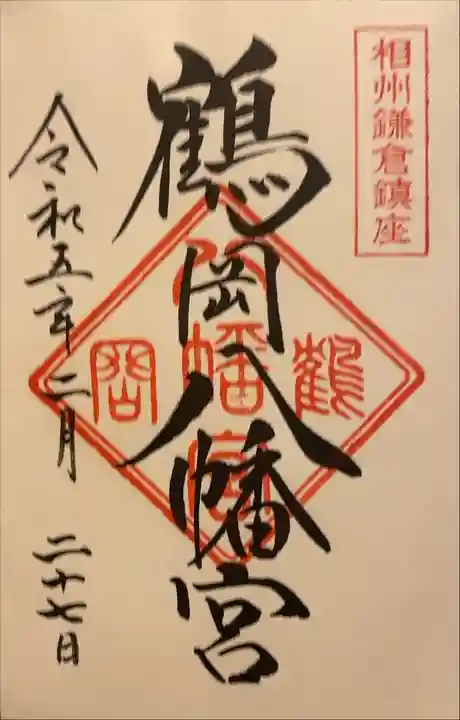 相州鎌倉鎮座
鶴岡八幡宮
鶴
八幡宮
岡
令和五年二月二十七日